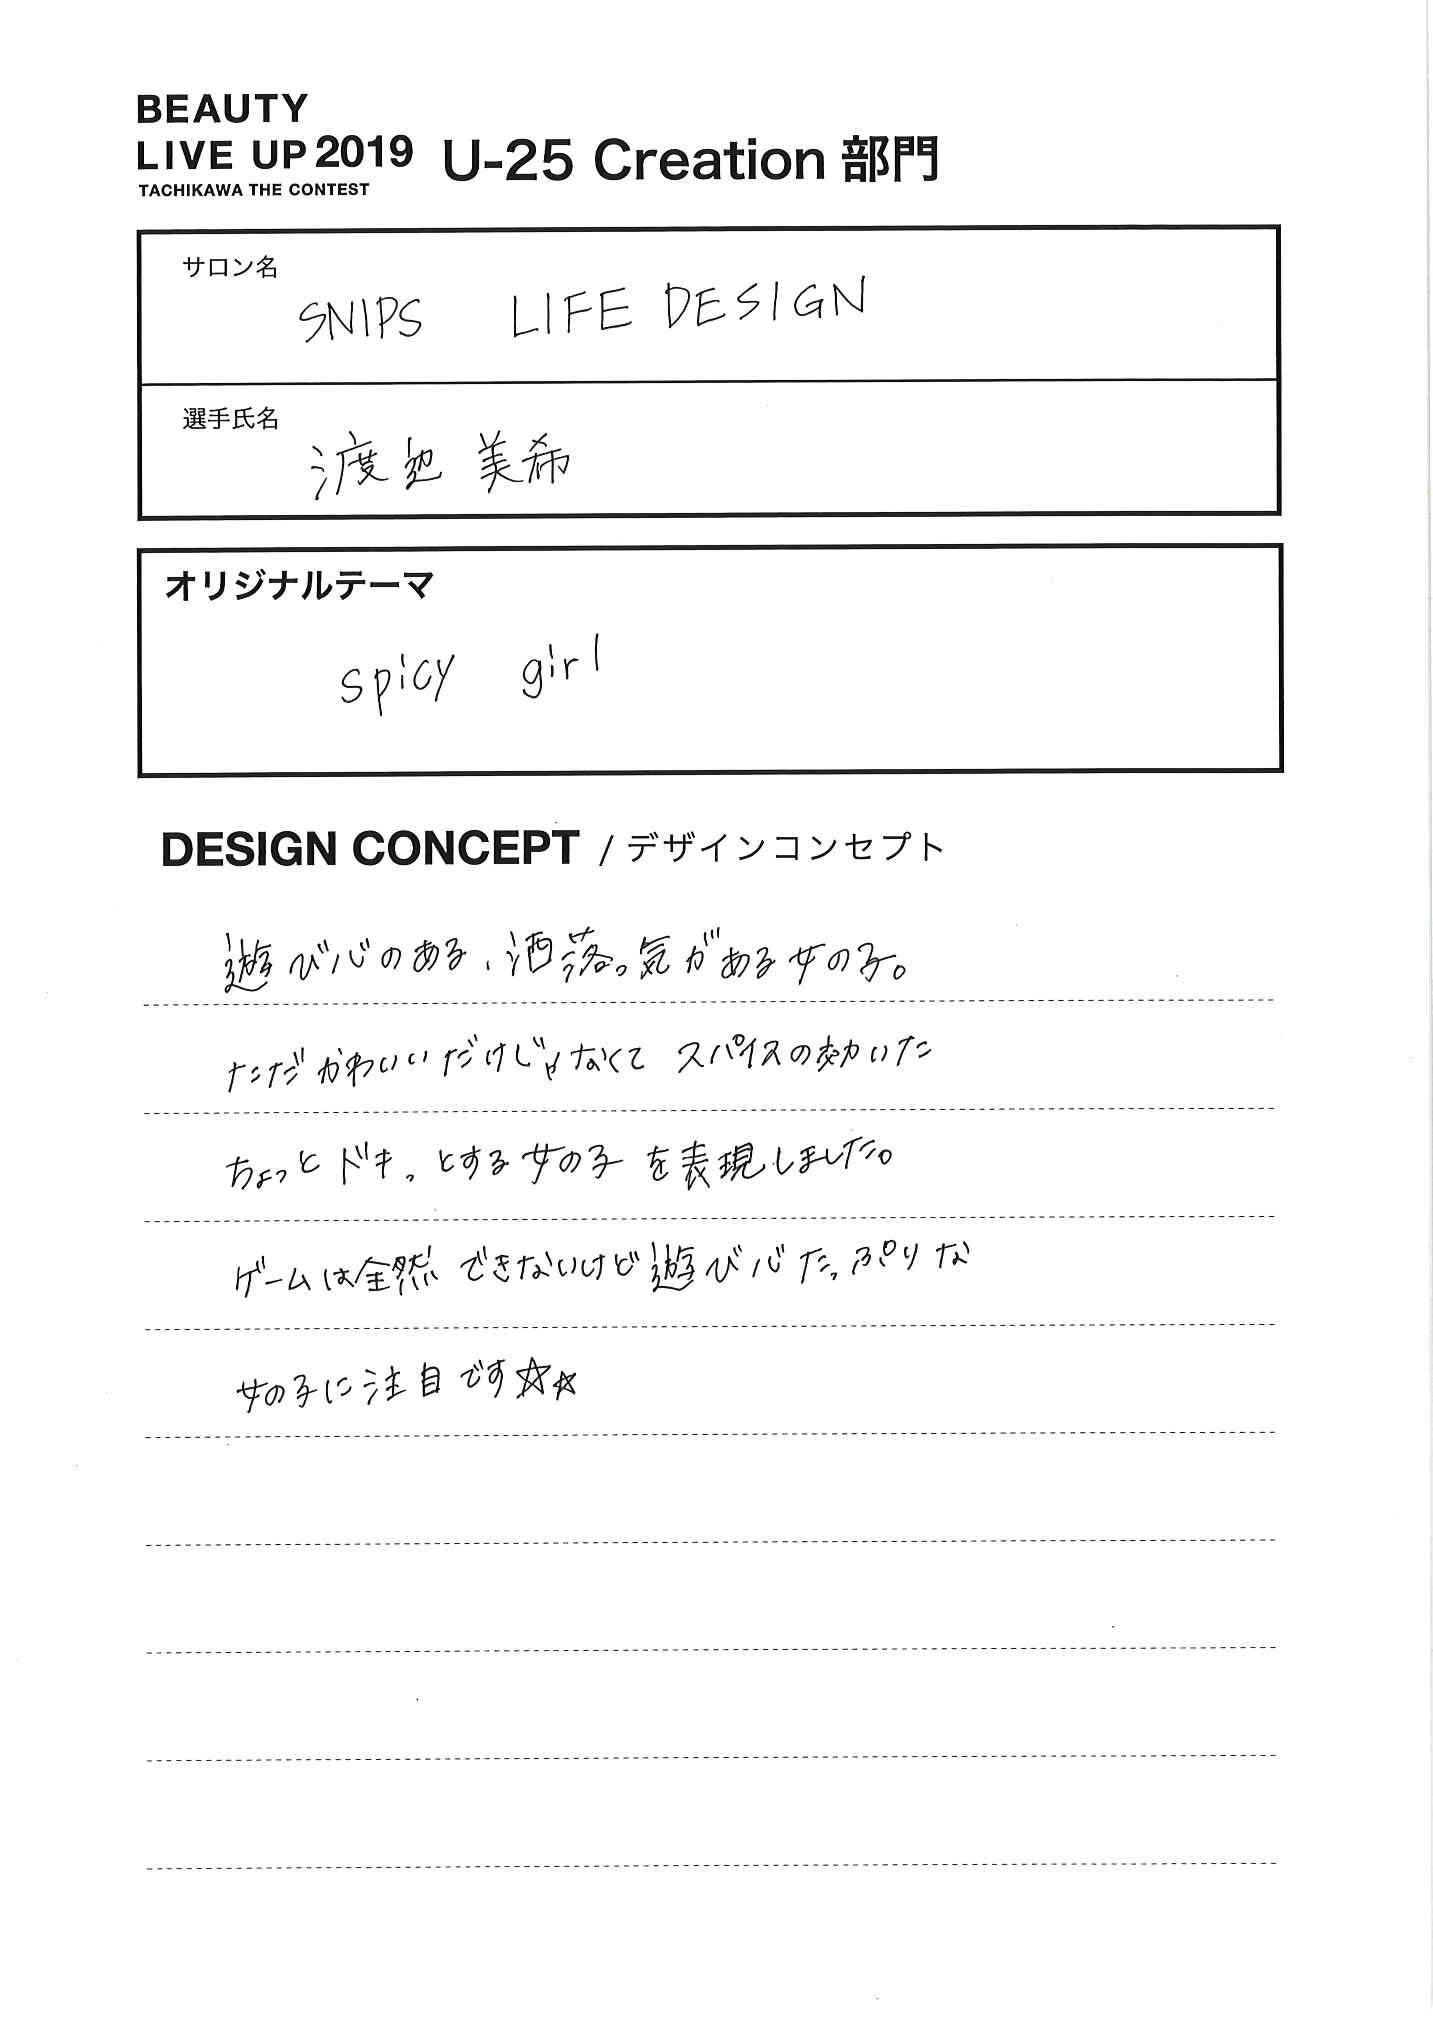 BEAUTY
LIVE UP 2019 U-25 Creation 部門
TACHIKAWA THE CONTEST
サロン名
SNIPS LIFE DESIGN
選手氏名
渡辺 美希
オリジナルテーマ
spicy girl
DESIGN CONCEPT / デザインコンセプト
遊び心のある、洒落っ気がある女の子。
ただかわいいだけじゃなくて スパイスの効いた
ちょっとドキっとする女の子を表現しました。
ゲームは全然できないけど遊び心たっぷりな
女の子に注目です☆☆